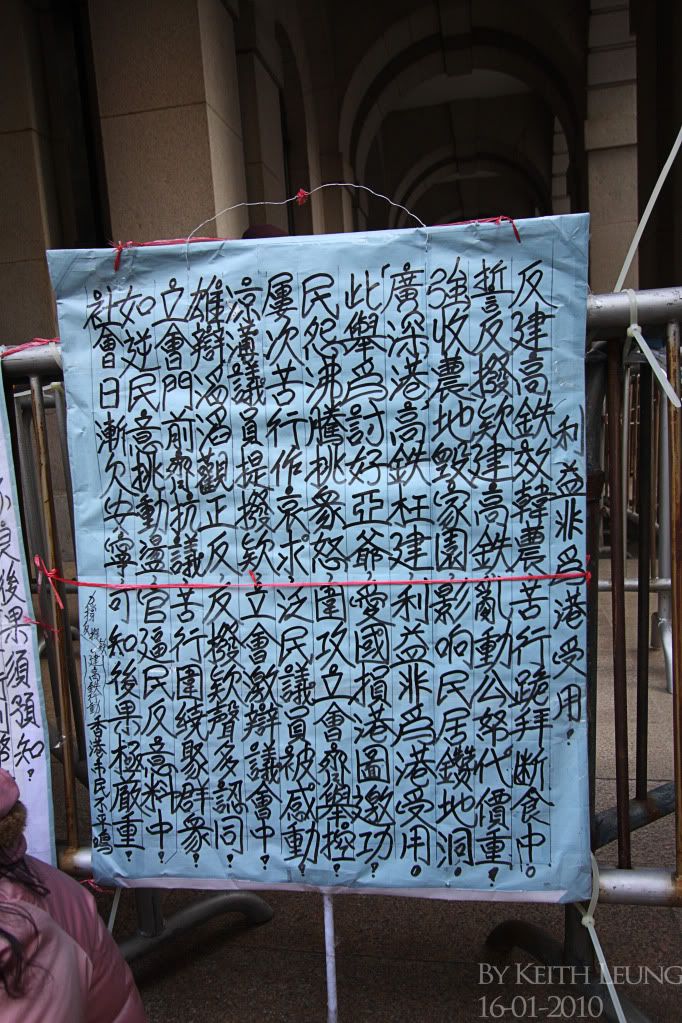 利益非為港受用！
反建高鉄效韓農苦行跪拜断食中。
誓反撥欵建高鉄亂動公帑代價重！
強收農地毀家園影响民居鑽地洞。
「廣深港高鉄枉建利益非為港受用。
此舉為討好亞爺愛國損港圖邀功！
民怨沸騰挑衆怒圍攻立會齊舉控！
屡次苦行作哀求泛民議員被感動！
凉薄議員提撥欵立會激辯議會中！
雄辯滔滔觀正反反撥欵聲多認同！
立會門前齊抗議苦行圍繞聚群衆！
如逆民意挑動盪官逼民反意料中！
社會日漸欠安寧可知後果極嚴重！
香港市民不平鳴
良後果須預知！
BY KEITH LEUNG
16-01-2010